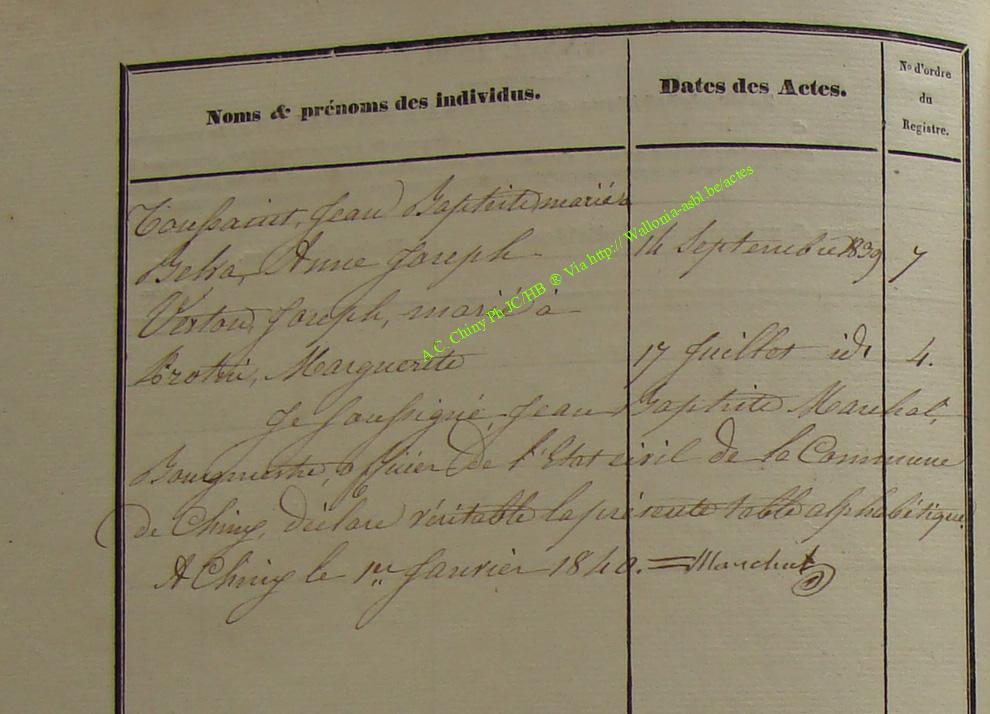 Noms & prénoms des individus.
Dates des Actes.
No d'ordre
du
Registre.
Toussaint, Jean Baptiste marié à
Belva, Anne Joseph 14 Septembre 1839 7
Joseph, marié à
Marguerite 17 Juillet id. 4.
Je soussigné, Jean Baptiste Marchal,
Bourgmestre, officier de l'Etat civil de la Commune
de Chiny, déclare véritable la présente table alphabétique.
A Chiny le 1er Janvier 1840. = Marchal
A.C. Chiny Ph JC/HB ® Via http://Wallonia-asbl.be/actes